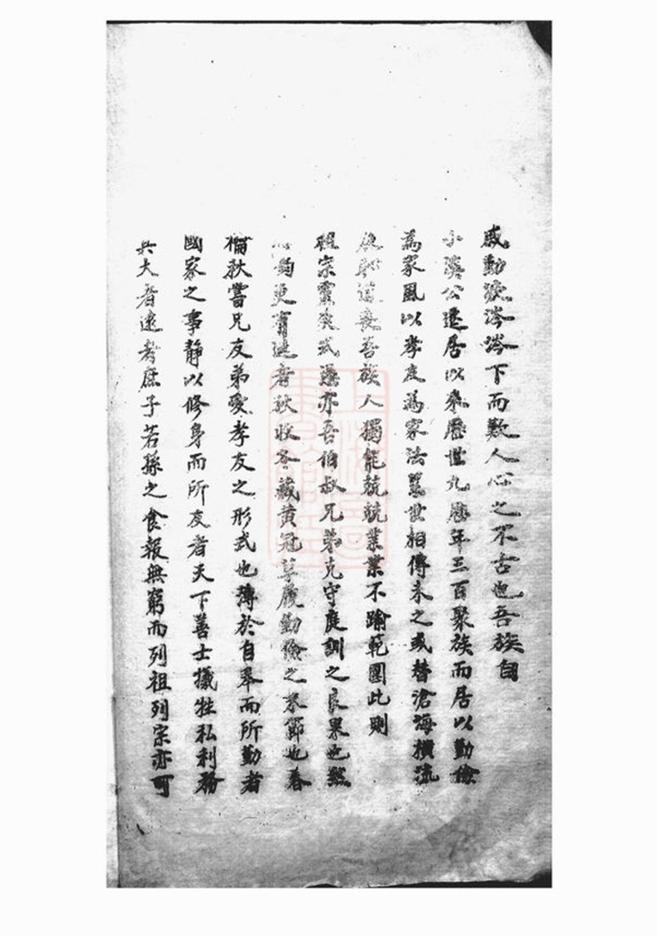 感動淚涔涔下而歎人心之不古也吾族自
小溪公遷居以來歷世九歷年三百聚族而居以勤儉
為家風以孝友為家法累世相傳未之或替滄海橫流
道喪吾族人獨能兢兢業業不踰範圍此則
祖宗靈爽式憑亦吾伯叔兄弟克守庭訓之良果也然
更有進者秋收冬藏黃冠草履勤儉之末節也春
禴秋嘗兄友弟愛孝友之形式也薄於自奉而所勤者
國家之事靜以修身而所友者天下善士犧牲私利務
其大者遠者庶子若孫之食報無窮而列祖列宗亦可
上海圖書館藏